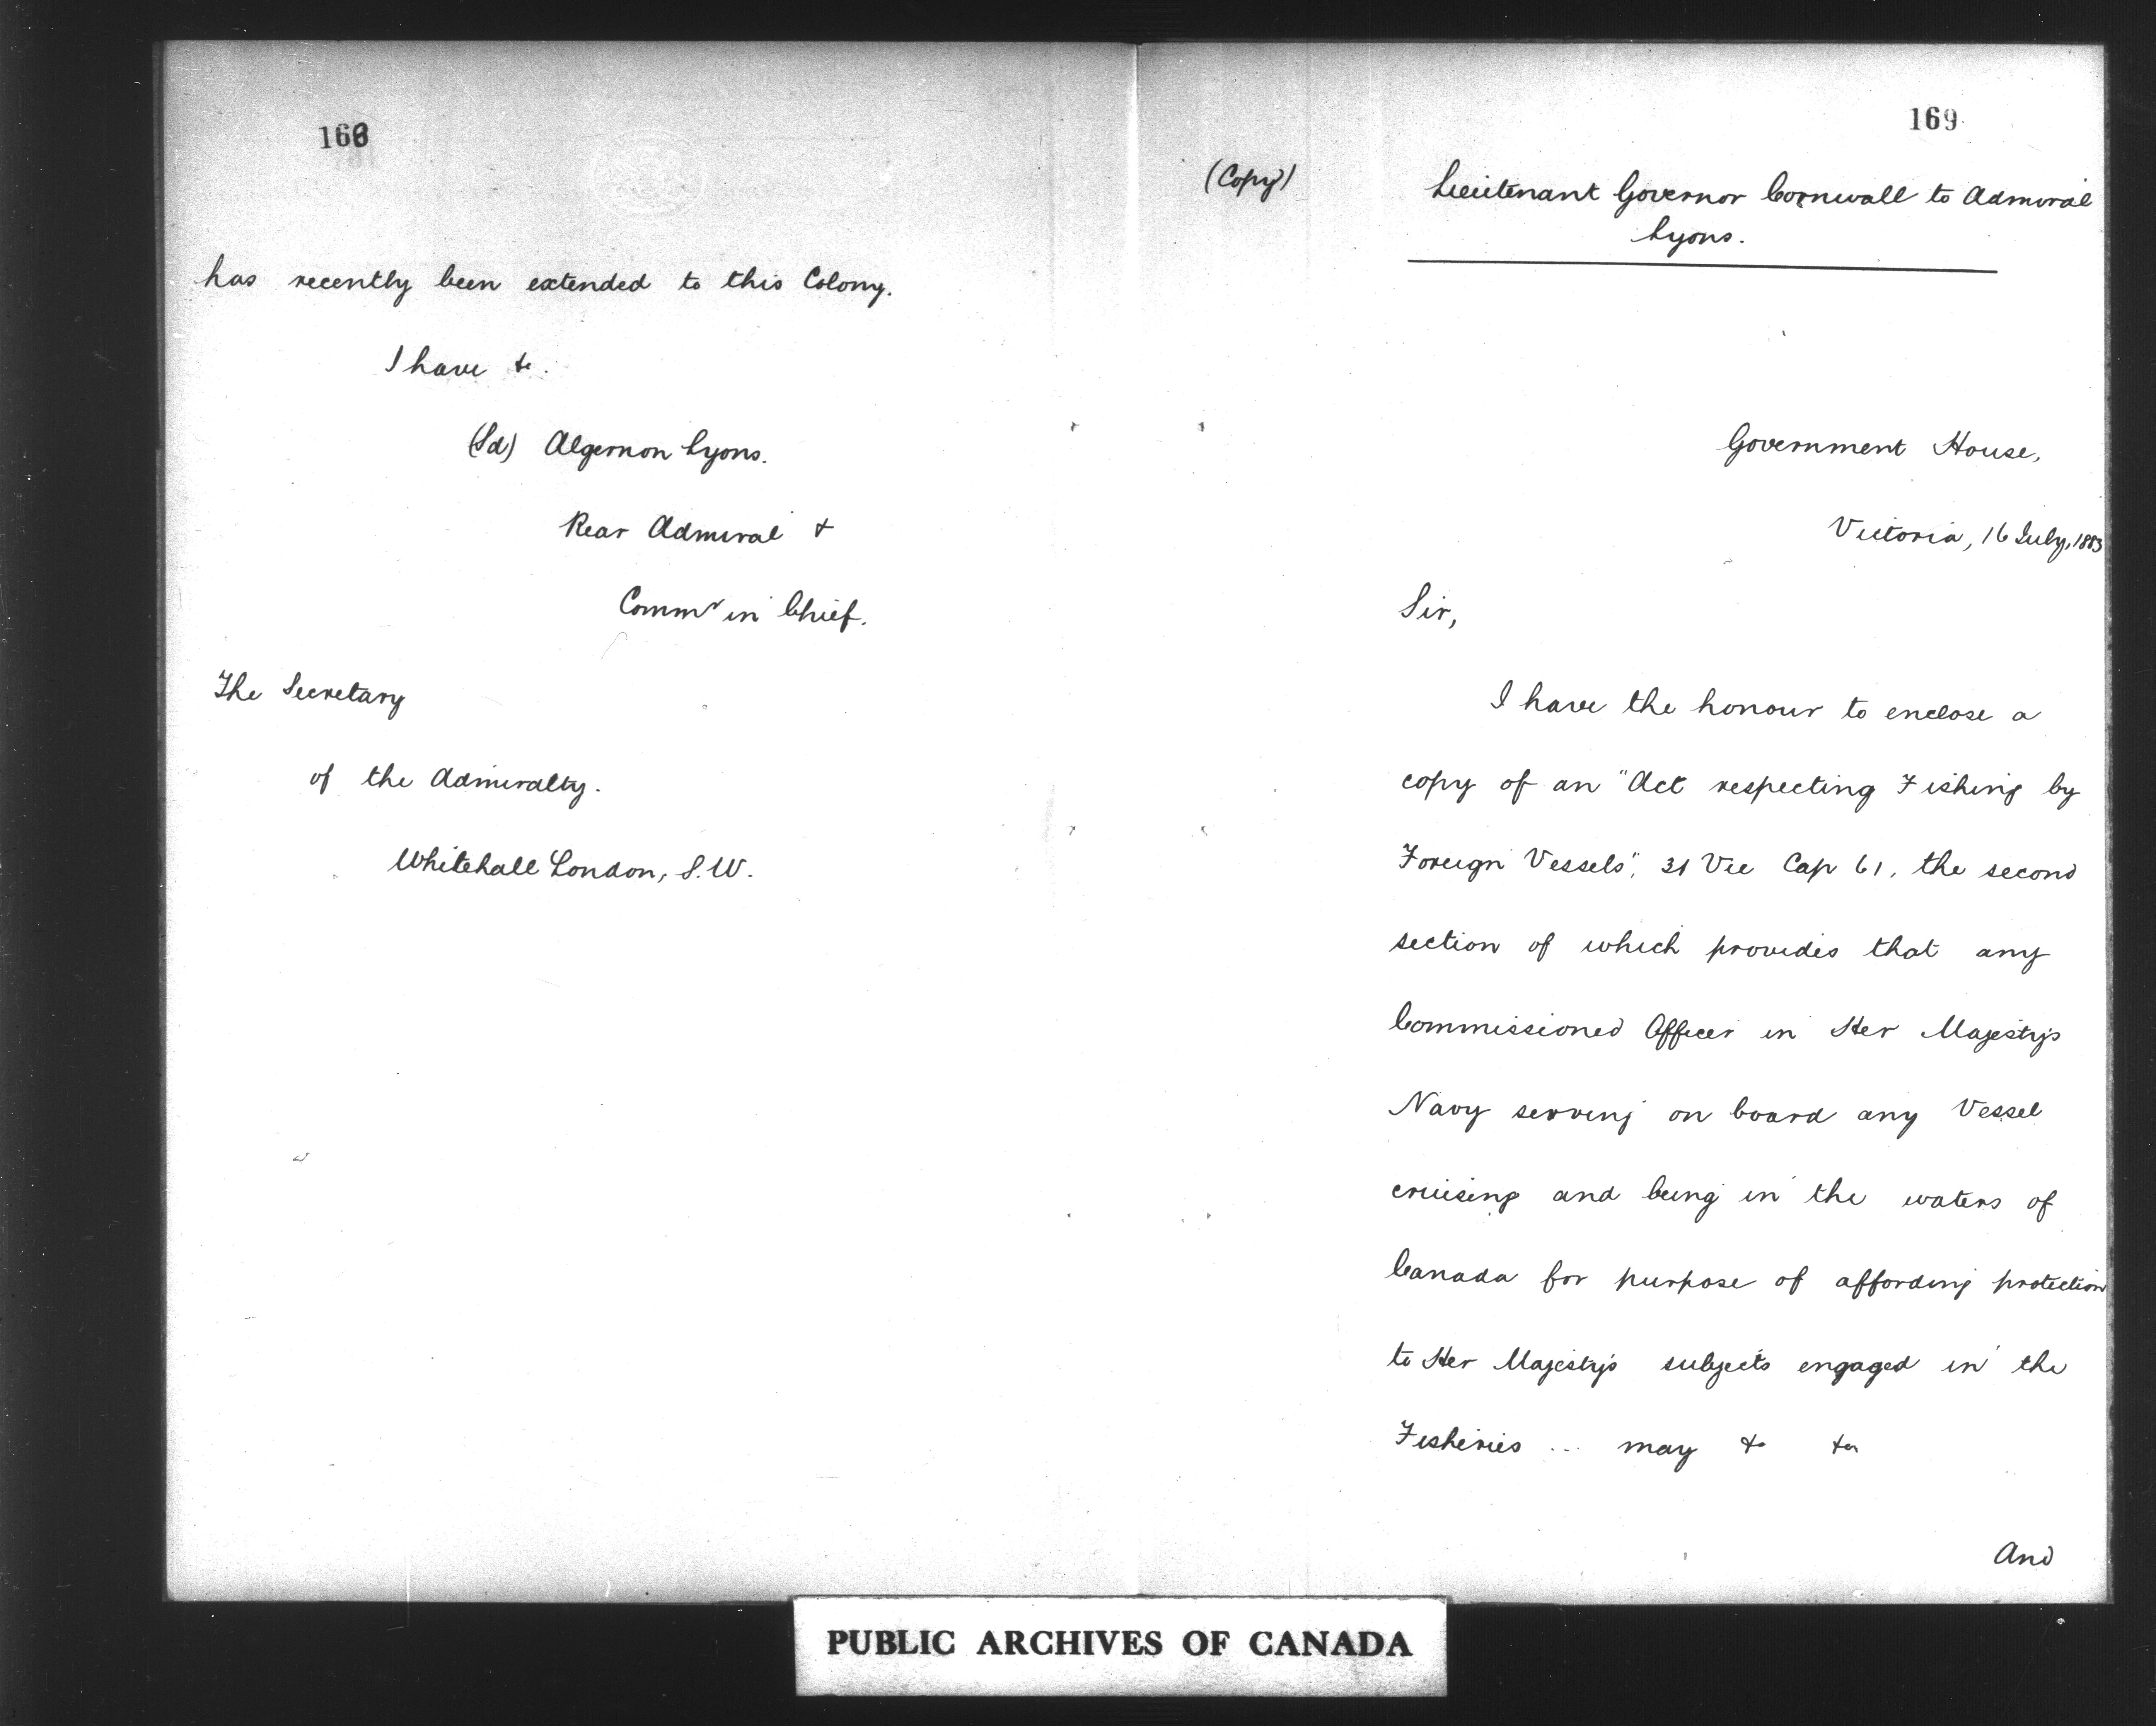 168
has recently been extended to this Colony.
I have &c.
(Sd) Algernon Lyons.
Rear Admiral &
Commr in Chief.
The Secretary
of the Admiralty.
Whitehall London, S.W.
169
(Copy)
Lieutenant Governor Cornwall to Admiral
Lyons.
Government House,
Victoria, 16 July, 1883
Sir,
I have the honour to enclose a
copy of an "Act respecting Fishing by
Foreign Vessels", 31 Vic Cap 61, the second
section of which provides that any
Commissioned Officer in Her Majesty's
Navy serving on board any Vessel
cruising and being in the waters of
Canada for purpose of affording protection
to Her Majesty's subjects engaged in the
Fisheries ... may &c &c
And
PUBLIC ARCHIVES OF CANADA